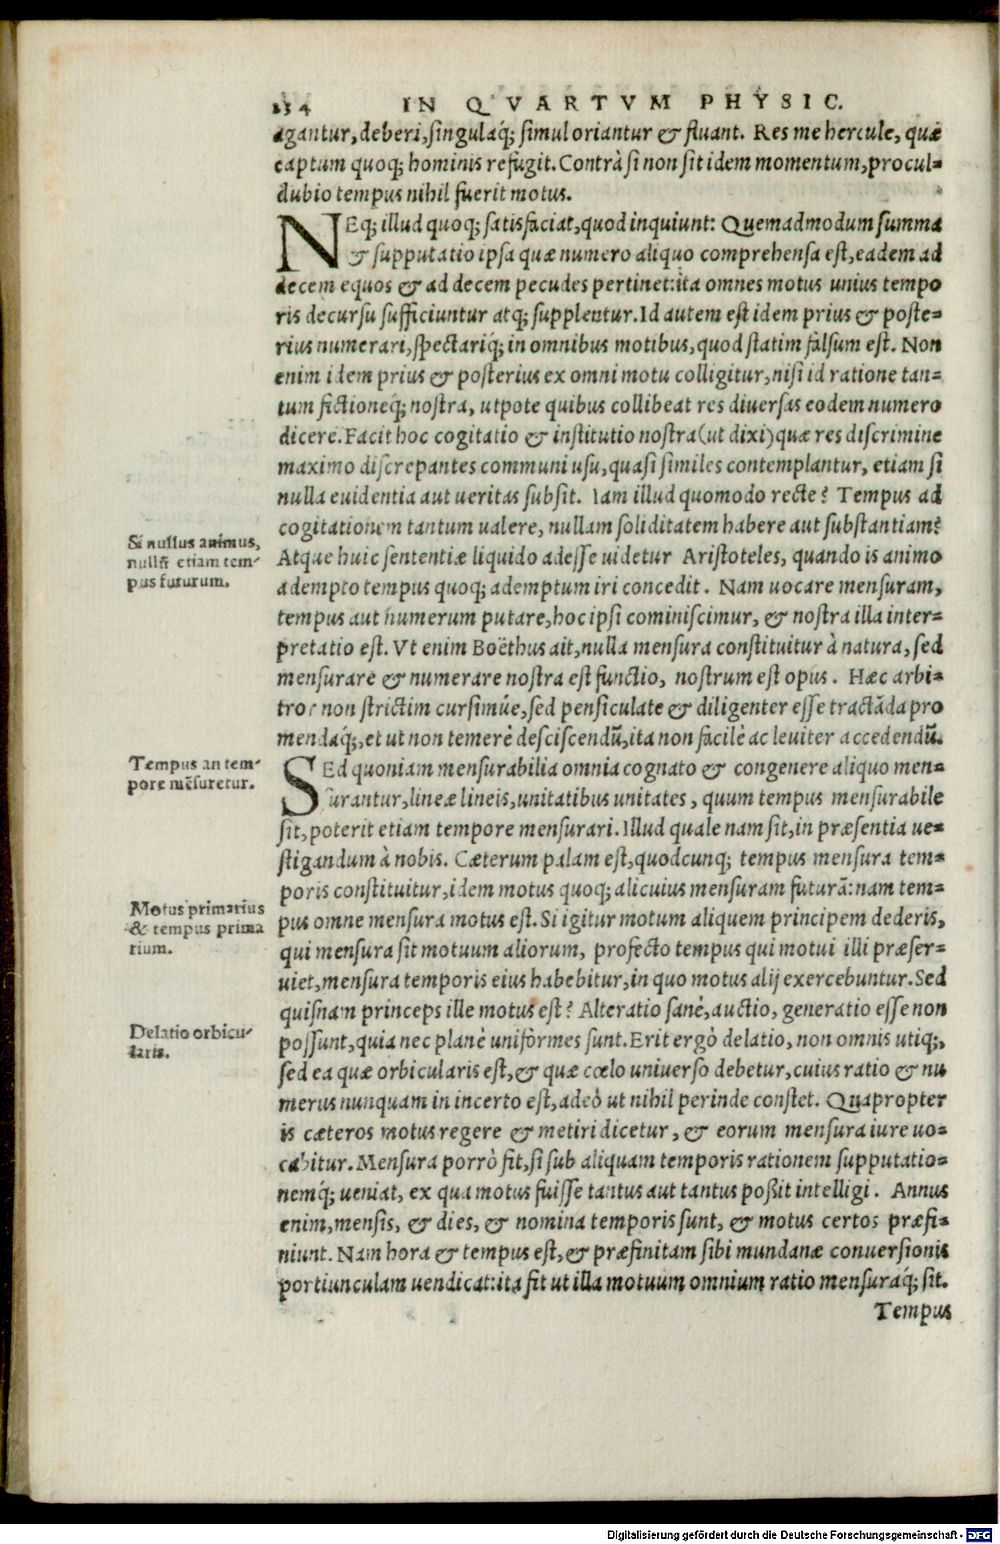 234 IN QVARTVM PHYSIC.
agantur, deberi, singulaq́; simul oriantur & fluant. Res me hercule, quæ
captum quoq; hominis refugit. Contrà si non sit idem momentum, procul-
dubio tempus nihil fuerit motus.
NEq; illud quoq; satisfaciat, quod inquiunt: Quemadmodum summa
& supputatio ipsa quæ numero aliquo comprehensa est, eadem ad
decem equos & ad decem pecudes pertinet: ita omnes motus unius tempo
ris decursu sufficiuntur atq; supplentur. Id autem est idem prius & poste-
rius numerari, spectariq́; in omnibus motibus, quod statim falsum est. Non
enim idem prius & posterius ex omni motu colligitur, nisi id ratione tan-
tum fictioneq́; nostra, utpote quibus collibeat res diuersas eodem numero
dicere. Facit hoc cogitatio & institutio nostra (ut dixi) quæ res discrimine
maximo discrepantes communi usu, quasi similes contemplantur, etiam si
nulla euidentia aut ueritas subsit. Iam illud quomodo recte? Tempus ad
cogitationem tantum ualere, nullam soliditatem habere aut substantiam?
Si nullus animus,
nullũ etiam tem-
pus futurum.
Atque huic sententiæ liquido adesse uidetur Aristoteles, quando is animo
adempto tempus quoq; ademptum iri concedit. Nam uocare mensuram,
tempus aut numerum putare, hoc ipsi cominiscimur, & nostra illa inter-
pretatio est. Vt enim Boëthus ait, nulla mensura constituitur à natura, sed
mensurare & numerare nostra est functio, nostrum est opus. Hæc arbi-
tror non strictim cursimúe, sed pensiculate & diligenter esse tractãda pro
mendaq́;, et ut non temerè desciscendũ, ita non facilè ac leuiter accedendũ.
Tempus an tem-
pore mẽsuretur.
SEd quoniam mensurabilia omnia cognato & congenere aliquo men-
surantur, lineæ lineis, unitatibus unitates, quum tempus mensurabile
sit, poterit etiam tempore mensurari. Illud quale nam sit, in præsentia ue-
stigandum à nobis. Cæterum palam est, quodcunq; tempus mensura tem-
poris constituitur, idem motus quoq; alicuius mensuram futurã: nam tem-
Motus primarius
& tempus prima
rium.
pus omne mensura motus est. Si igitur motum aliquem principem dederis,
qui mensura sit motuum aliorum, profecto tempus qui motui illi præser-
uiet, mensura temporis eius habebitur, in quo motus alij exercebuntur. Sed
quisnam princeps ille motus est? Alteratio sanè, auctio, generatio esse non
Delatio orbicu-
laris.
possunt, quia nec planè uniformes sunt. Erit ergò delatio, non omnis utiq;,
sed ea quæ orbicularis est, & quæ cœlo uniuerso debetur, cuius ratio & nu
merus nunquam in incerto est, adeò ut nihil perinde constet. Quapropter
is cæteros motus regere & metiri dicetur, & eorum mensura iure uo-
cabitur. Mensura porrò fit, si sub aliquam temporis rationem supputatio-
nemq́; ueniat, ex qua motus fuisse tantus aut tantus poßit intelligi. Annus
enim, mensis, & dies, & nomina temporis sunt, & motus certos præfi-
niunt. Nam hora & tempus est, & præfinitam sibi mundanæ conuersionis
portiunculam uendicat: ita fit ut illa motuum omnium ratio mensuraq́; sit.
Tempus
Digitalisierung gefördert durch die Deutsche Forschungsgemeinschaft - DFG